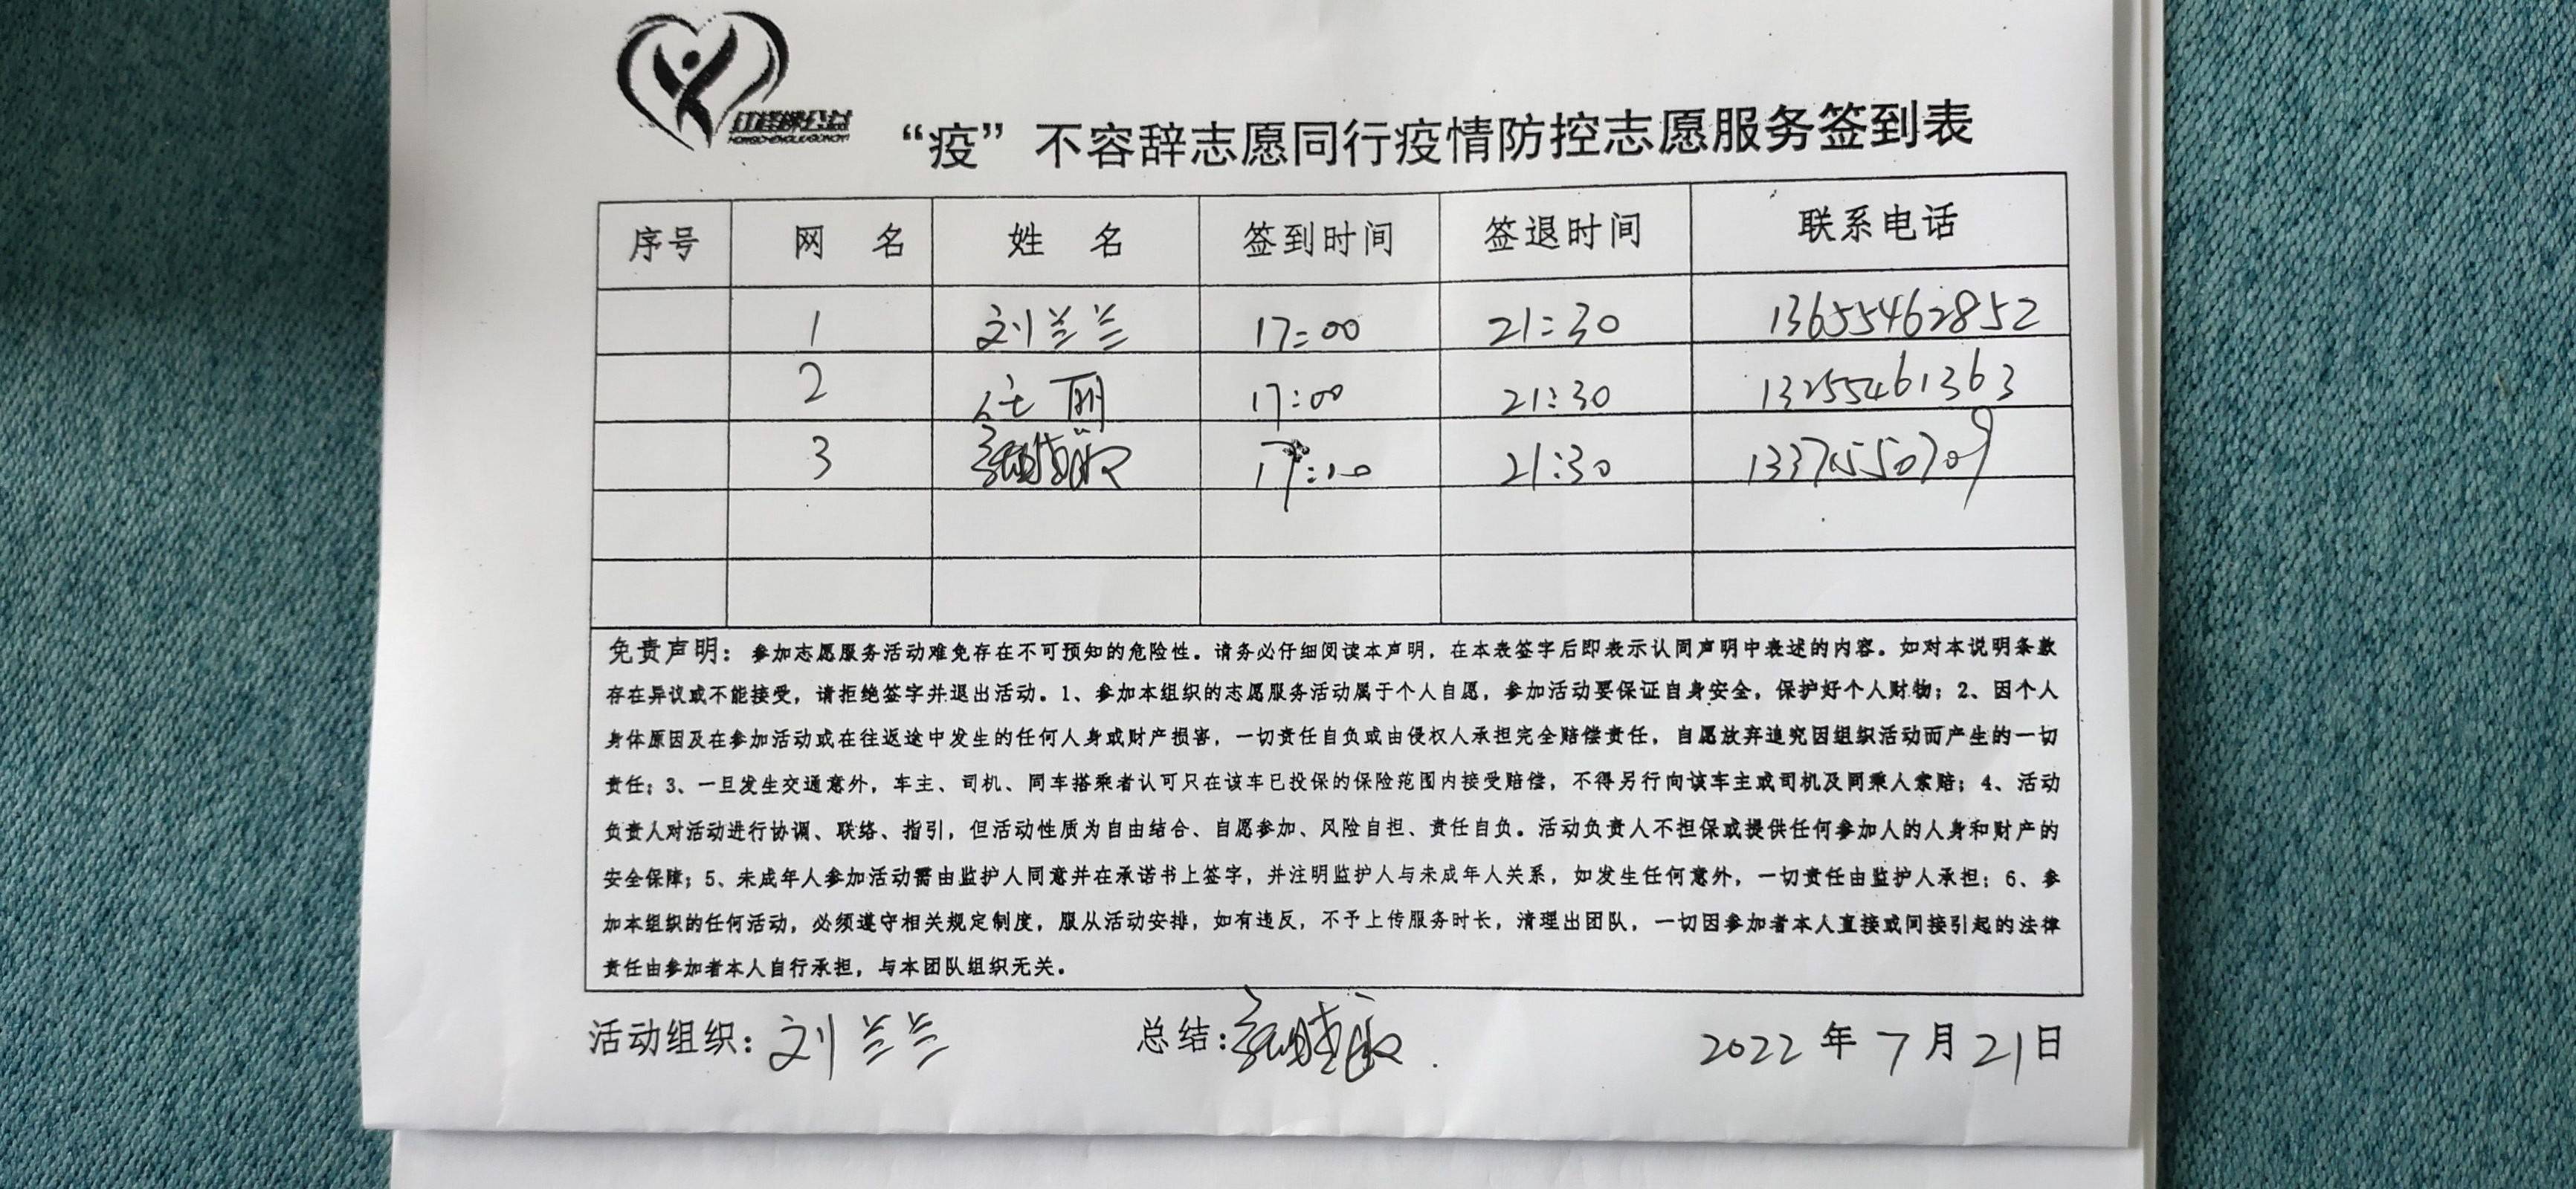 “疫”不容辞志愿同行疫情防控志愿服务签到表
序号 网 名 姓 名 签到时间 签退时间 联系电话
1 刘兰兰 17:00 21:30 13655462852
2 任丽 17:00 21:30 13255461363
3 21:30 13371550709
免责声明：参加志愿服务活动难免存在不可预知的危险性。请务必仔细阅读本声明，在本表签字后即表示认同声明中表述的内容。如对本说明条款
存在异议或不能接受，请拒绝签字并退出活动。1、参加本组织的志愿服务活动属于个人自愿，参加活动要保证自身安全，保护好个人财物；2、因个人
身体原因及在参加活动或在往返途中发生的任何人身或财产损害，一切责任自负或由侵权人承担完全赔偿责任，自愿放弃追究因组织活动而产生的一切
责任；3、一旦发生交通意外，车主、司机、同车搭乘者认可只在该车已投保的保险范围内接受赔偿，不得另行向该车主或司机及同乘人索赔；4、活动
负责人对活动进行协调、联络、指引，但活动性质为自由结合、自愿参加、风险自担、责任自负。活动负责人不担保或提供任何参加人的人身和财产的
安全保障；5、未成年人参加活动需由监护人同意并在承诺书上签字，并注明监护人与未成年人关系，如发生任何意外，一切责任由监护人承担；6、参
加本组织的任何活动，必须遵守相关规定制度，服从活动安排，如有违反，不予上传服务时长，清理出团队，一切因参加者本人直接或间接引起的法律
责任由参加者本人自行承担，与本团队组织无关。
活动组织：刘兰兰 总结： 2022年7月21日